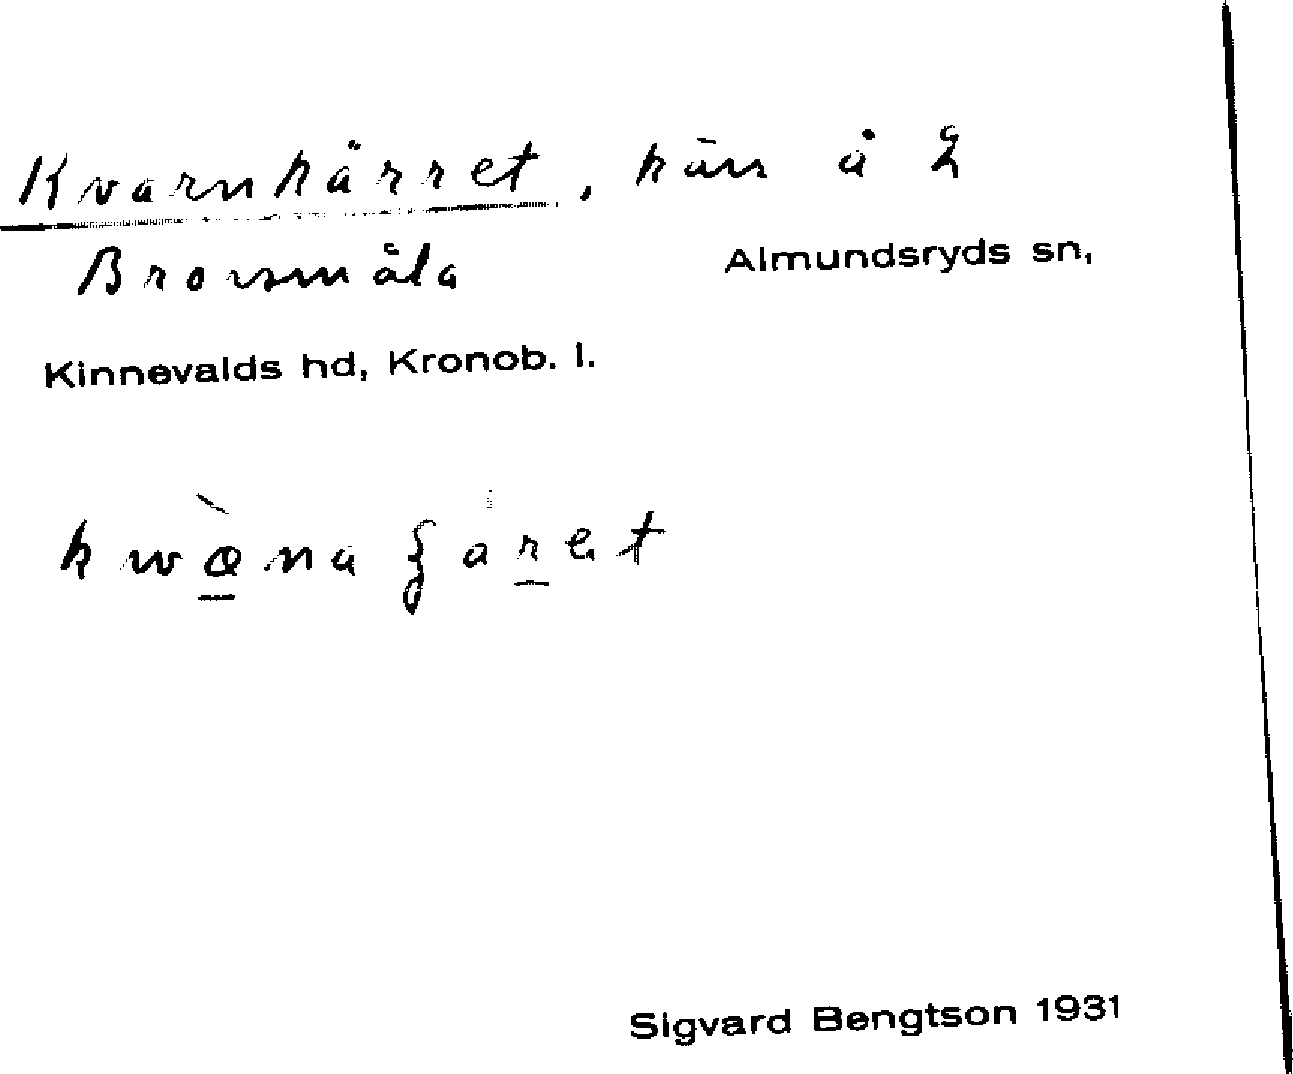 Kvarnkärret, kärr å
Brorsmåla Almundsryds sn,
Kinnevalds hd, Kronob. l.
Sigvard Bengtson 1931